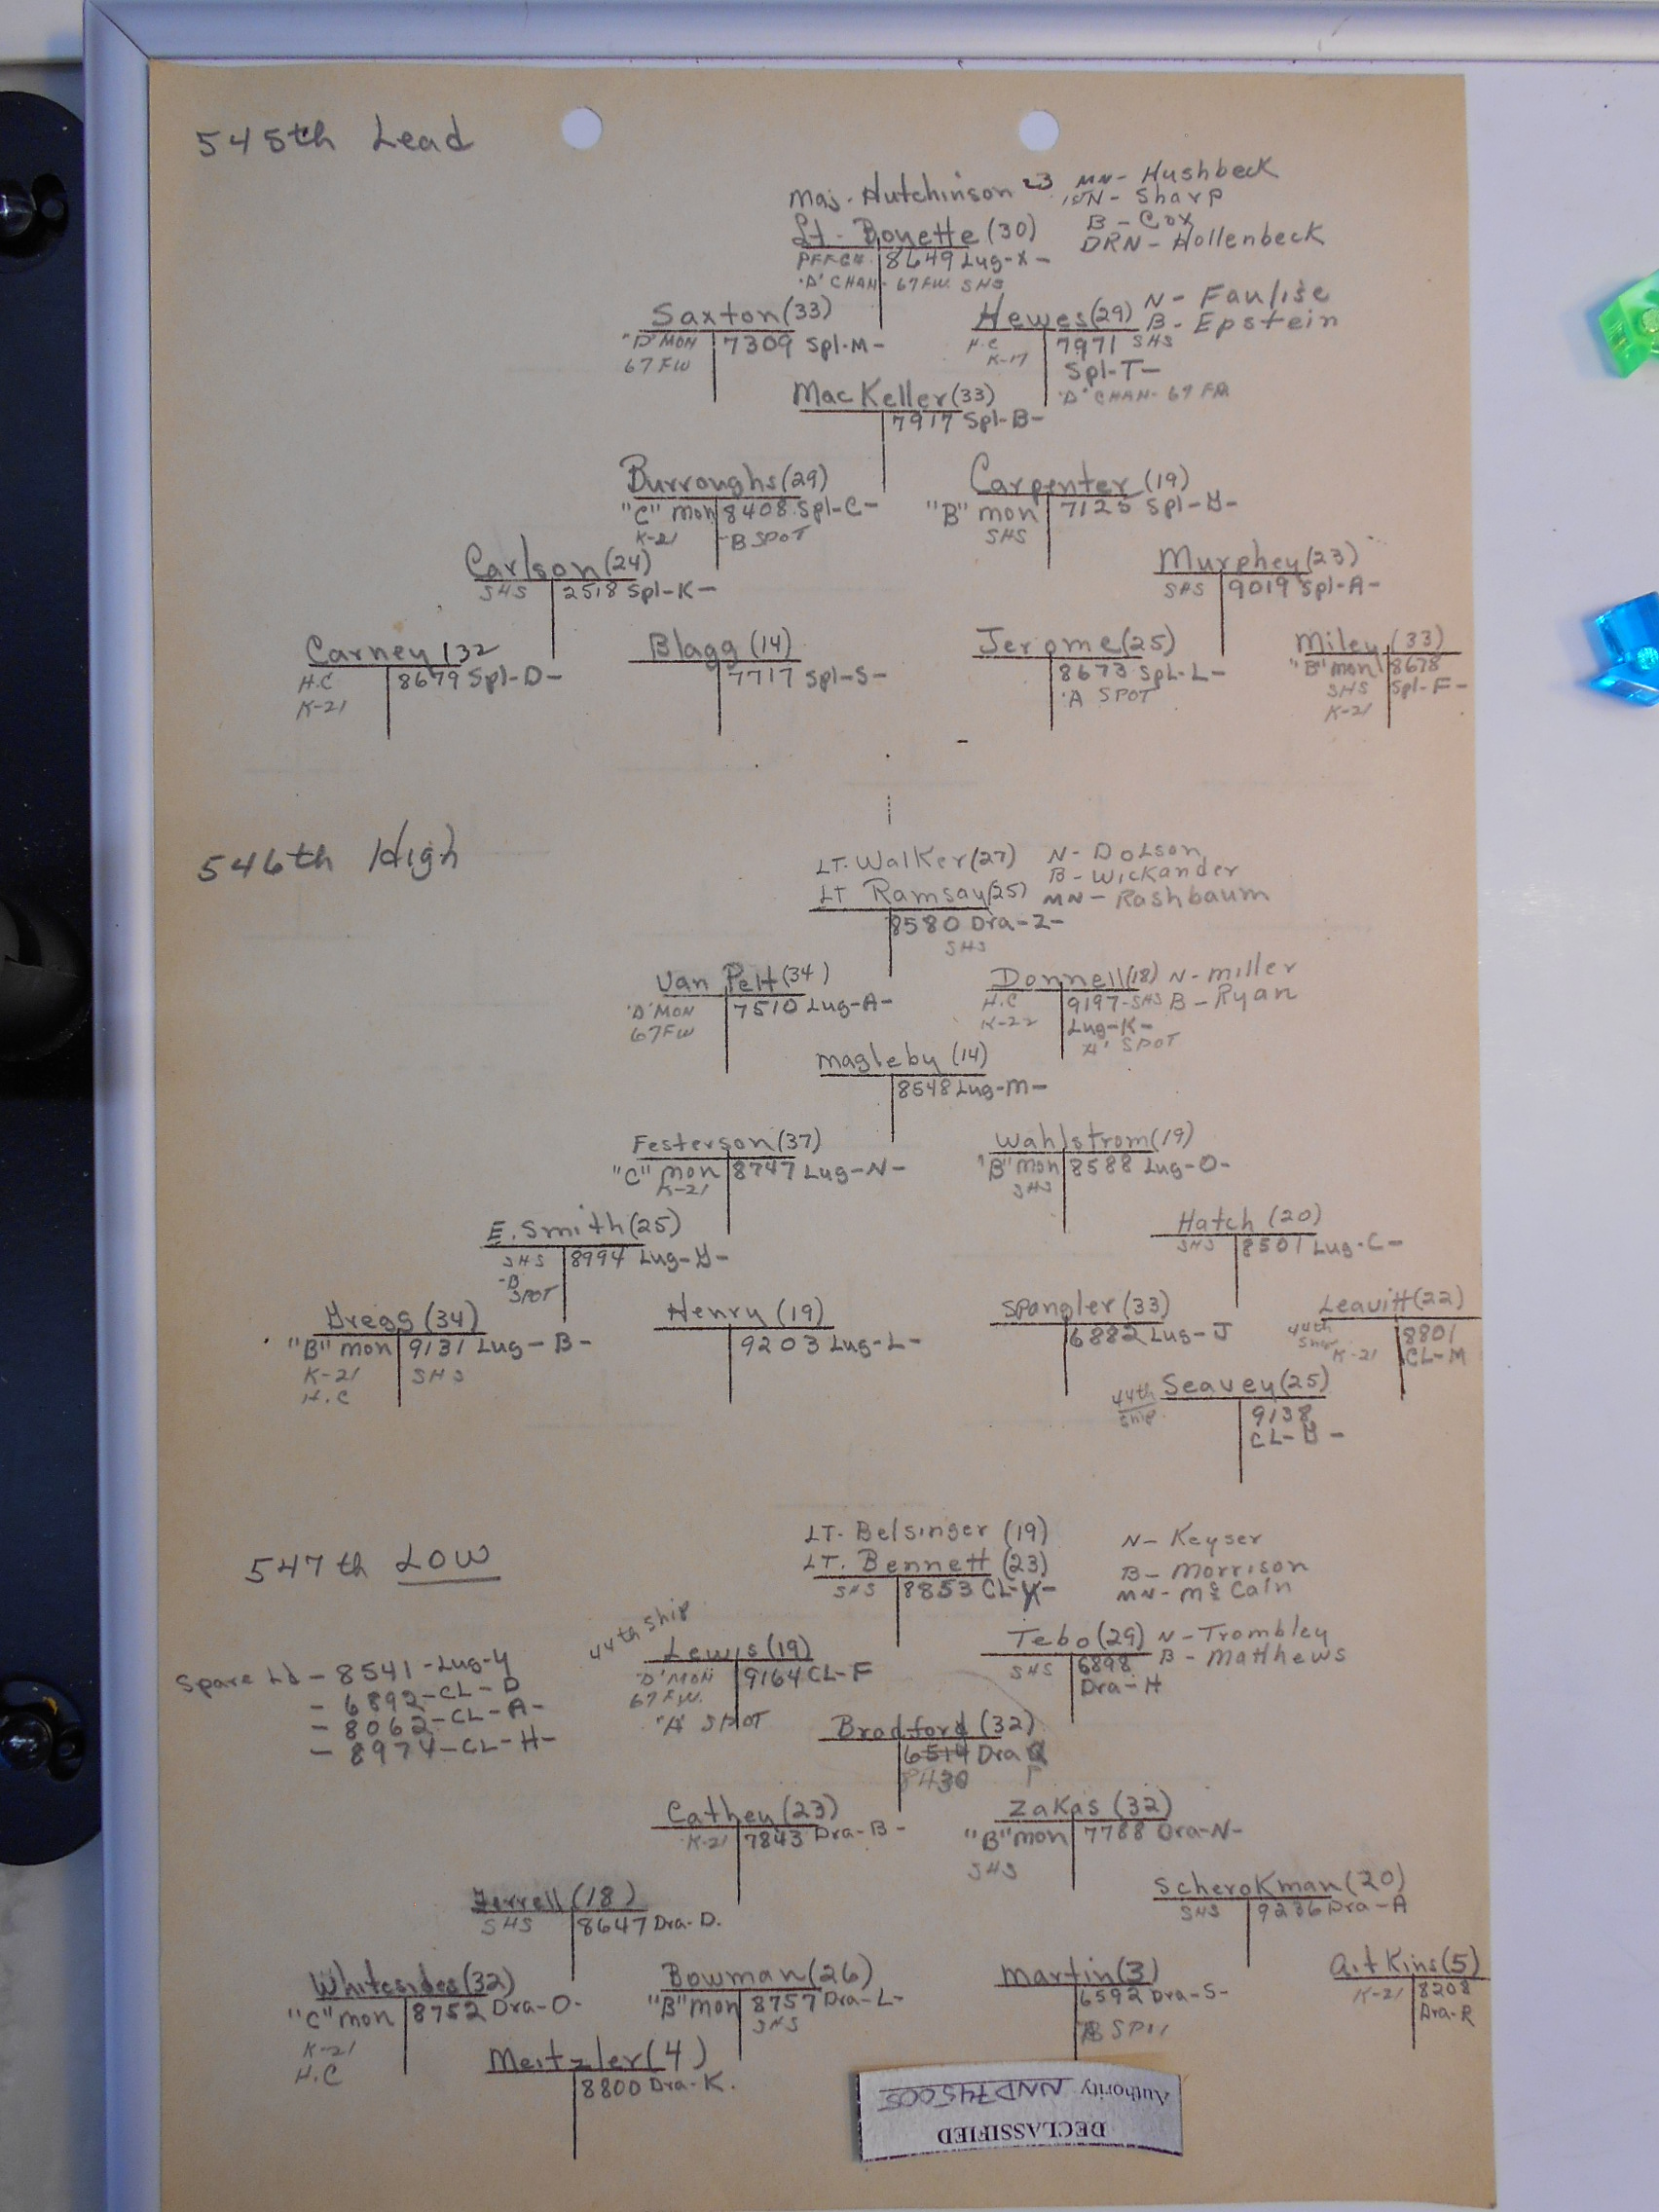 545th Lead
Maj. Hutchinson 23 MN- Hushbeck
N- Sharp
Lt. Bouette (30) B - Cox
DRN- Hollenbeck
PFF GH 8649 Lug-X-
'D' CHAN- 67 FW. SHS
Saxton (33)
"D" MON 7309 Spl-M-
67 FW
Hewes (29) N- Faulise
B- Epstein
H.C 7971 SHS
K-17 Spl-T-
'D' CHAN- 67 FW
MacKeller (33)
7917 Spl-B-
Burroughs (29)
"C" mon 8408 Spl-C-
K-21 -B SPOT
Carpenter (19)
"B" mon 7125 Spl-G-
SHS
Carlson (24)
SHS 2518 Spl-K-
Murphey (23)
SHS 9019 Spl-A-
Carney (32
H.C 8679 Spl-D-
K-21
Blagg (14)
7717 Spl-S-
Jerome (25)
8673 Spl-L-
'A SPOT
Miley (33)
"B" mon 8678
SHS Spl-F-
K-21
546th High
LT. Walker (27) N- Dolson
LT Ramsay (25) B- Wickander
MN- Rashbaum
8580 Dra-Z-
SHS
Van Pelt (34)
'D' MON 7510 Lug-A-
67 FW
Donnell (18) N- Miller
H.C 9197-SHS B- Ryan
K-22 Lug-K-
'A' SPOT
Magleby (14)
8548 Lug-M-
Festerson (37)
"C" mon 8747 Lug-N-
K-21
Wahlstrom (19)
"B" mon 8588 Lug-O-
SHS
E. Smith (25)
SHS 8994 Lug-G-
-B
SPOT
Hatch (20)
SHS 8501 Lug-C-
Gregg (34)
"B" mon 9131 Lug-B-
K-21 SHS
H.C
Henry (19)
9203 Lug-L-
Spangler (33)
6882 Lug-J
Leavitt (22)
44th Ship 8801
K-21 CL-M
Seavey (25)
44th Ship 9138
CL-G-
547th LOW
LT. Belsinger (19) N- Keyser
LT. Bennett (23) B- Morrison
SHS 8853 CL-Y- MN- McCain
Spare Ld - 8541-Lug-Y
- 6892-CL-D
- 8062-CL-A-
- 8974-CL-H-
44th Ship
Lewis (19)
'D' MON 9164 CL-F
67 FW.
"A" SPOT
Tebo (29) N- Trombley
SHS 6898 B- Matthews
Dra-H
Bradford (32)
6514 Dra Q
8430 P
Cathey (23)
K-21 7843 Dra-B-
Zakas (32)
"B" mon 7788 Dra-N-
SHS
Ferrell (18)
SHS 8647 Dra-D.
Scherokman (20)
SHS 9236 Dra-A
Whitesides (32)
"C" mon 8752 Dra-O-
K-21
H.C
Bowman (26)
"B" mon 8757 Dra-L-
SHS
Martin (3)
6592 Dra-S-
B SPOT
Aitkins (5)
K-21 8208
Dra-R
Meitzler (4)
8800 Dra-K.
DECLASSIFIED
Authority NND745005